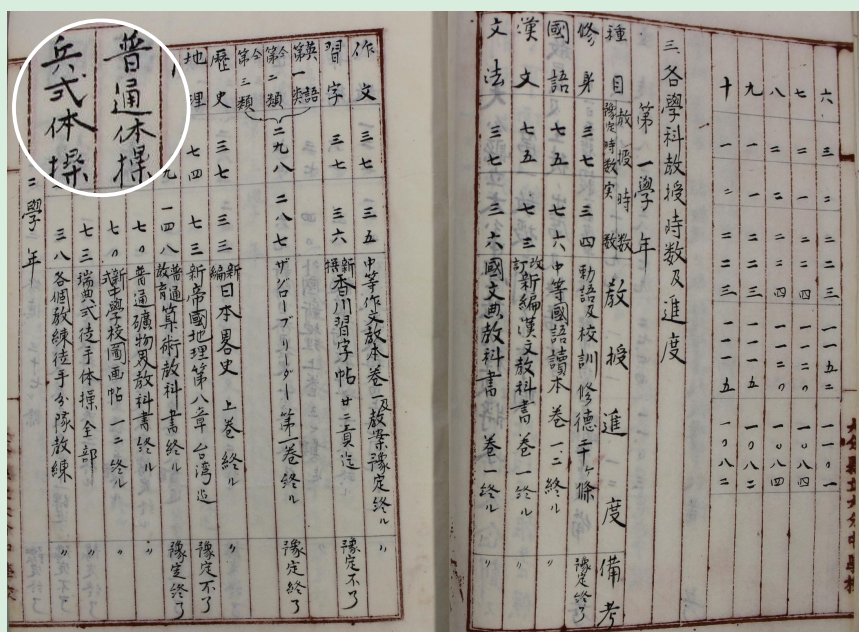 六 三 二 二二三 一一五二 一一〇一
七 二 二 二二四 一一二〇 一〇八四
八 二 二 二二四 一一二〇 一〇八四
九 一 一 二二三 一一一五 一〇八二
十 一 二 二二三 一一一五 一〇八二
三、各學科教授時数及進度
第一學年
種目 教授時数 豫定時数 実数 教授進度 備考
修身 三七 三四 勅語及校訓修徳二十ヶ條 豫定終了
國語 七五 七六 中等國語讀本巻一、二終ル 〃
漢文 七五 七三 改訂新編漢文教科書巻一終ル 〃
文法 三七 三六 國文典教科書巻一終ル 〃
作文 三七 三五 中等作文教本巻一及教案豫定終ル 〃
習字 三七 三六 新撰香川習字帖廿二頁迄 豫定不了
英語第一類
仝第二類 二九八 二八七 ザグローブリーダー第一巻終ル 豫定終了
仝第三類
歴史 三七 三三 新編日本畧史上巻終ル 〃
地理 七四 七三 新帝國地理第八章台湾迄 豫定不了
一四八 普通教育算術教科書終ル 豫定終了
七〇 普通礦物界教科書終ル 〃
七〇 新式中學校圖画帖一二終ル 〃
普通体操
七三 瑞典式徒手体操全部 〃
兵式体操
三八 各個教練徒手分隊教練 〃
二學年